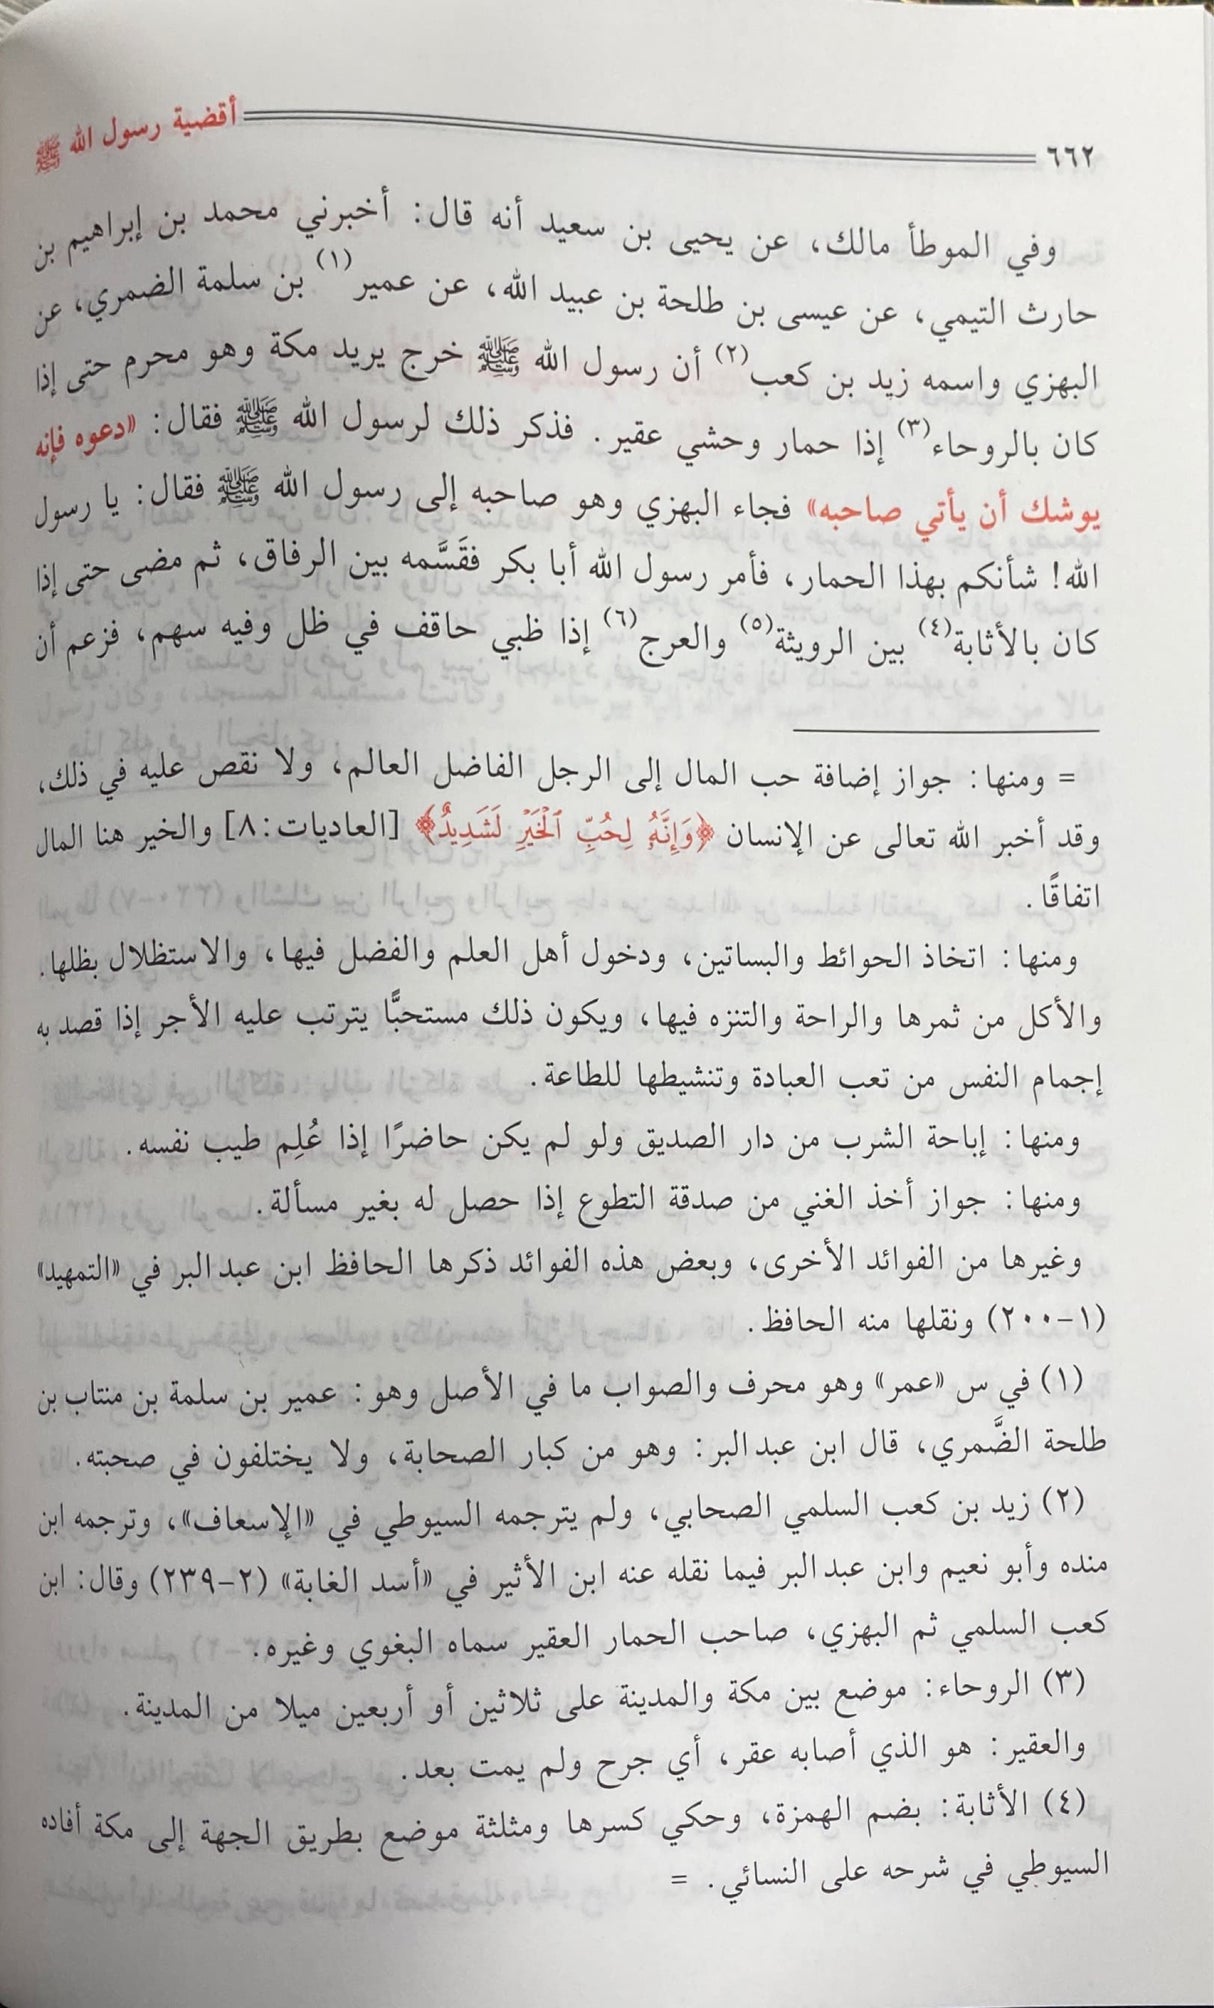 ٦٦٢ أقضية رسول الله ﷺ
وفي الموطأ مالك، عن يحيى بن سعيد أنه قال: أخبرني محمد بن إبراهيم بن
حارث التيمي، عن عيسى بن طلحة بن عبيد الله، عن عمير(١) بن سلمة الضمري، عن
البهزي واسمه زيد بن كعب(٢) أن رسول الله ﷺ خرج يريد مكة وهو محرم حتى إذا
كان بالروحاء(٣) إذا حمار وحشي عقير. فذكر ذلك لرسول الله ﷺ فقال: «دعوه فإنه
يوشك أن يأتي صاحبه» فجاء البهزي وهو صاحبه إلى رسول الله ﷺ فقال: يا رسول
الله! شأنكم بهذا الحمار، فأمر رسول الله أبا بكر فقَسَّمه بين الرفاق، ثم مضى حتى إذا
كان بالأثابة(٤) بين الرويثة(٥) والعرج(٦) إذا ظبي حاقف في ظل وفيه سهم، فزعم أن
= ومنها: جواز إضافة حب المال إلى الرجل الفاضل العالم، ولا نقص عليه في ذلك،
وقد أخبر الله تعالى عن الإنسان ﴿وَإِنَّهُۥ لِحُبِّ ٱلْخَيْرِ لَشَدِيدٌ﴾ [العاديات: ٨] والخير هنا المال
اتفاقًا.
ومنها: اتخاذ الحوائط والبساتين، ودخول أهل العلم والفضل فيها، والاستظلال بظلها.
والأكل من ثمرها والراحة والتنزه فيها، ويكون ذلك مستحبًّا يترتب عليه الأجر إذا قصد به
إجمام النفس من تعب العبادة وتنشيطها للطاعة.
ومنها: إباحة الشرب من دار الصديق ولو لم يكن حاضرًا إذا عُلِم طيب نفسه.
ومنها: جواز أخذ الغني من صدقة التطوع إذا حصل له بغير مسألة.
وغيرها من الفوائد الأخرى، وبعض هذه الفوائد ذكرها الحافظ ابن عبد البر في «التمهيد»
(١-٢٠٠) ونقلها منه الحافظ.
(١) في س «عمر» وهو محرف والصواب ما في الأصل وهو: عمير بن سلمة بن منتاب بن
طلحة الضَّمري، قال ابن عبد البر: وهو من كبار الصحابة، ولا يختلفون في صحبته.
(٢) زيد بن كعب السلمي الصحابي، ولم يترجمه السيوطي في «الإسعاف»، وترجمه ابن
منده وأبو نعيم وابن عبد البر فيما نقله عنه ابن الأثير في «أسد الغابة» (٢-٢٣٩) وقال: ابن
كعب السلمي ثم البهزي، صاحب الحمار العقير سماه البغوي وغيره.
(٣) الروحاء: موضع بين مكة والمدينة على ثلاثين أو أربعين ميلا من المدينة.
والعقير: هو الذي أصابه عقر، أي جرح ولم يمت بعد.
(٤) الأثابة: بضم الهمزة، وحكي كسرها ومثلثة موضع بطريق الجهة إلى مكة أفاده
السيوطي في شرحه على النسائي. =